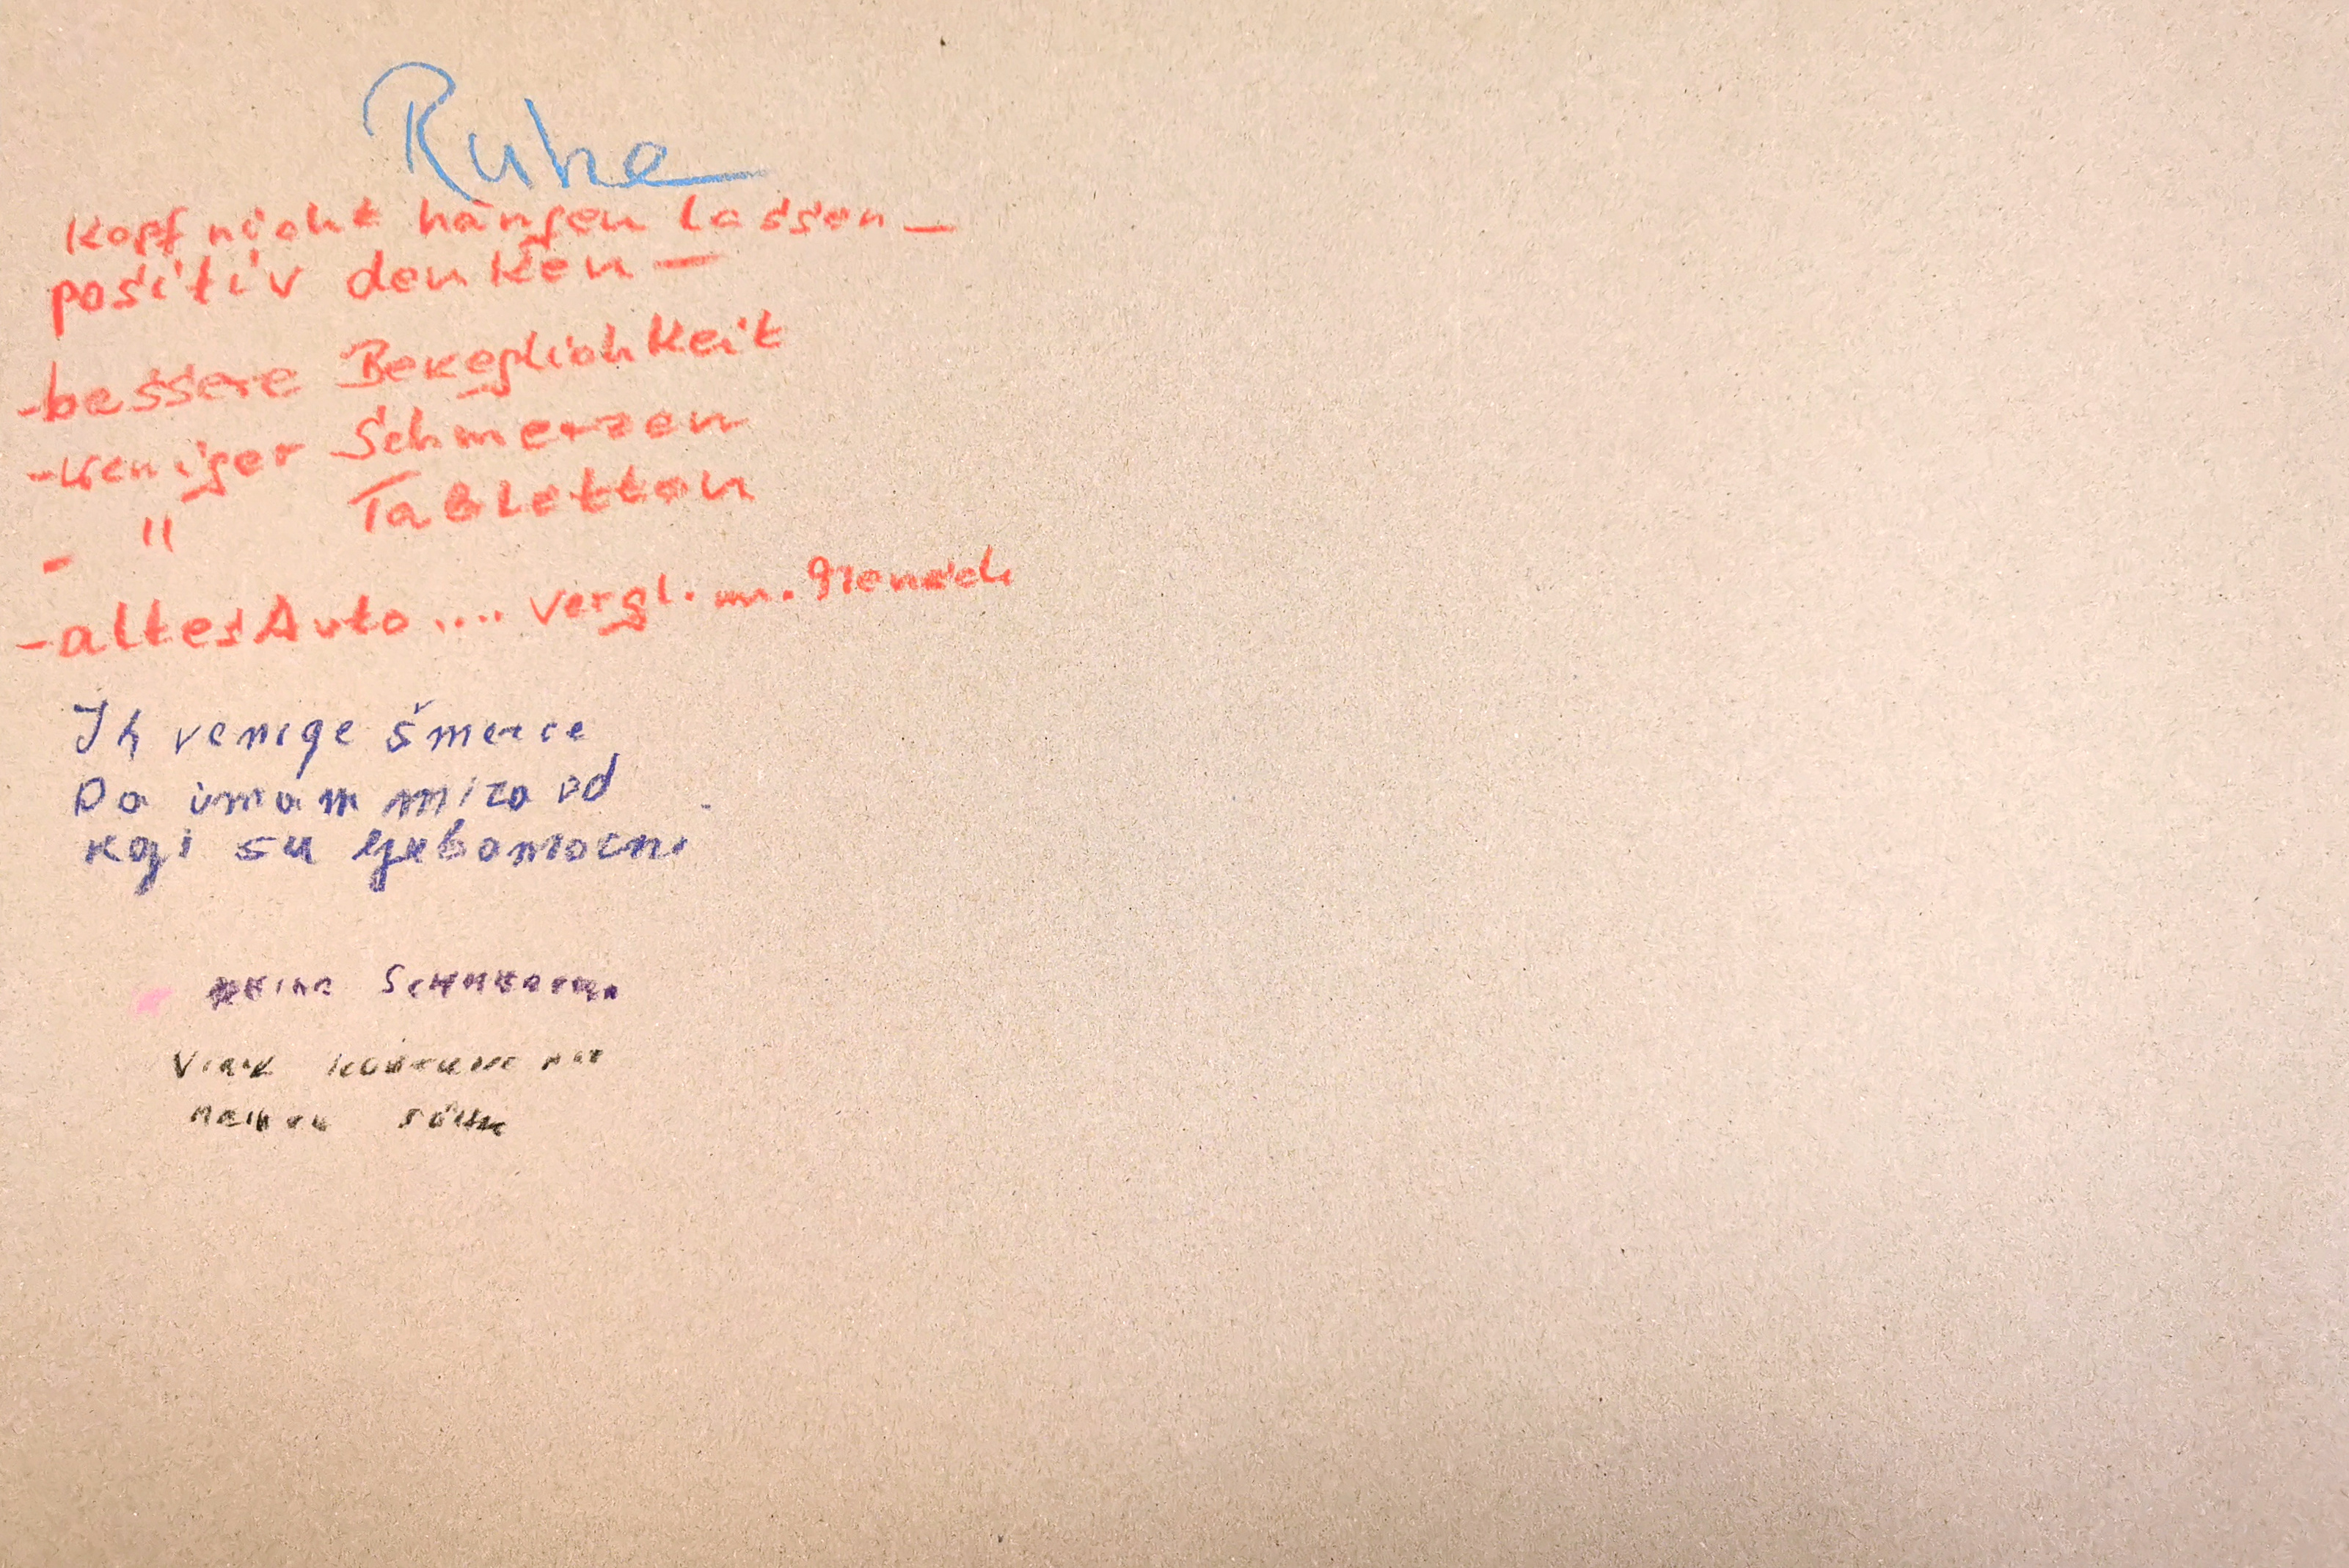 Ruhe
Kopf nicht hängen lassen –
positiv denken –
- bessere Beweglichkeit
- weniger Schmerzen
- " Tabletten
- altes Auto .... vergl. m. Mensch
Ih venige šmerce
Da imam mira od
koji su ljubomorni
keine Schmerzen
Viele mit
meinen Söhne